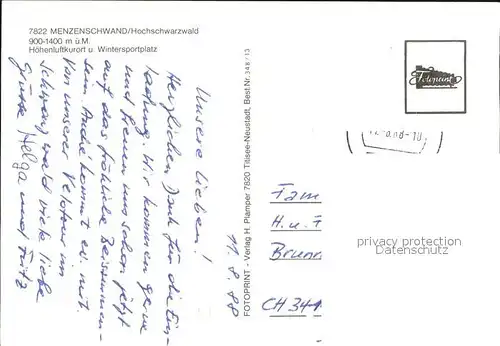 7822 MENZENSCHWAND/Hochschwarzwald
900-1400 m ü.M.
Höhenluftkurort u. Wintersportplatz
11.8.88
Unsere Lieben!
Herzlichen Dank für die Ein-
ladung. Wir kommen gerne
und freuen uns schon jetzt
auf das fröhliche Beisammen-
sein. André kommt ev. mit.
Von unserer Velotour im
Schwarzwald viele liebe
Grüsse Helga und Fritz
FOTOPRINT - Verlag H. Plamper 7820 Titisee-Neustadt, Best.Nr.
Fotoprint
Fam
H. u. F
Brunn
CH 34
privacy protection
Datenschutz